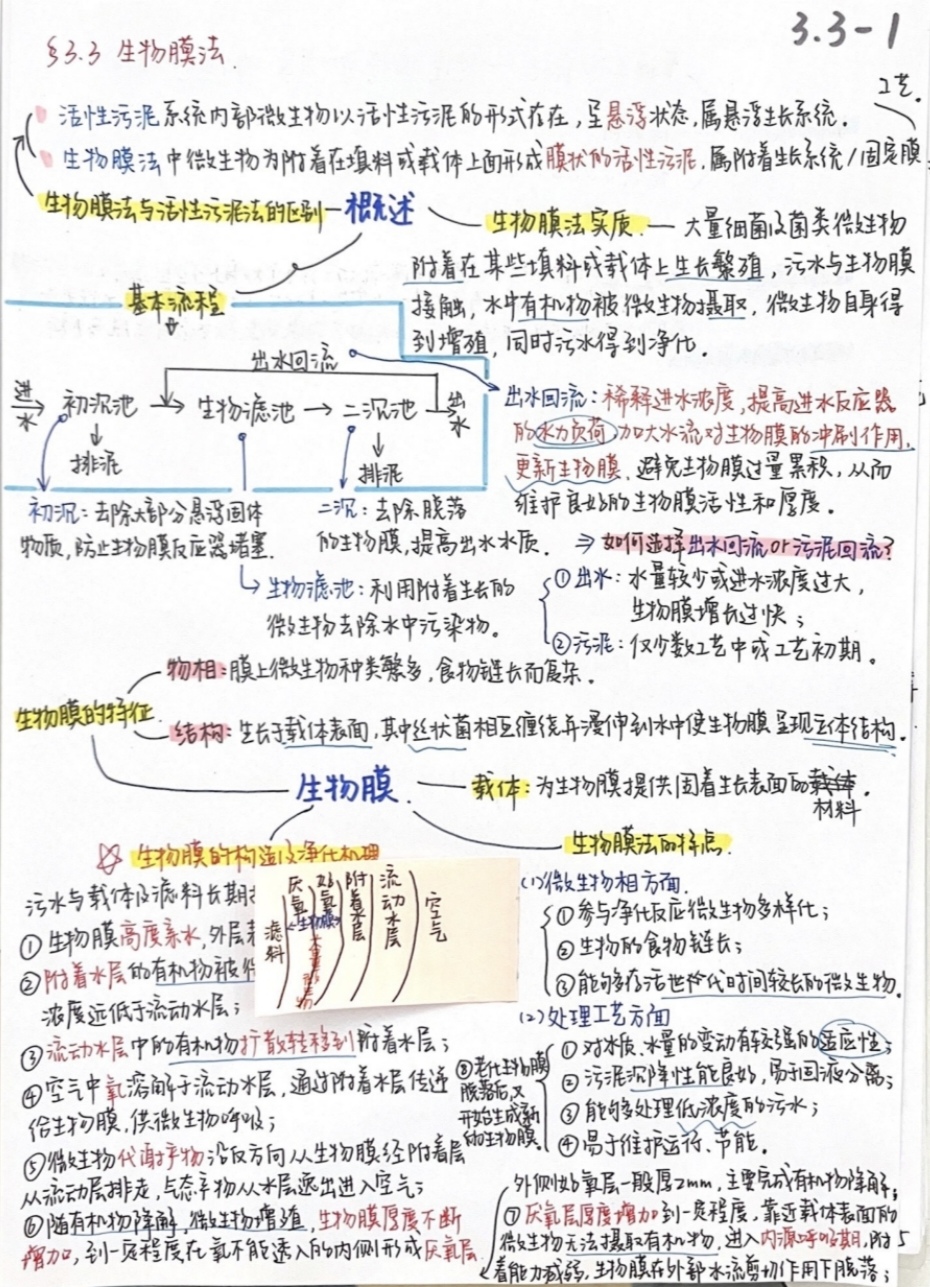 3.3-1
§3.3 生物膜法.
工艺.
活性污泥系统内部微生物以活性污泥的形式存在,呈悬浮状态,属悬浮生长系统.
生物膜法中微生物为附着在填料或载体上面形成膜状的活性污泥.属附着生长系统/固定膜
生物膜法与活性污泥法的区别
概述
生物膜法实质
大量细菌及菌类微生物
附着在某些填料或载体上生长繁殖,污水与生物膜
接触,水中有机物被微生物摄取,微生物自身得
到增殖,同时污水得到净化.
基本流程
出水回流
进水
初沉池
生物滤池
二沉池
出水
排泥
排泥
出水回流:稀释进水浓度,提高进水反应器
的水力负荷,加大水流对生物膜的冲刷作用.
更新生物膜.避免生物膜过量累积,从而
维护良好的生物膜活性和厚度.
初沉:去除大部分悬浮固体
物质,防止生物膜反应器堵塞.
二沉:去除脱落
的生物膜,提高出水水质.
生物滤池:利用附着生长的
微生物去除水中污染物.
⇒如何选择出水回流or污泥回流?
①出水:水量较少或进水浓度过大,
生物膜增长过快;
②污泥:仅少数工艺中或工艺初期.
生物膜的特征
物相:膜上微生物种类繁多,食物链长而复杂.
结构:生长于载体表面,其中丝状菌相互缠绕并漫伸到水中使生物膜呈现立体结构.
生物膜
载体:为生物膜提供固着生长表面的
材料.
☆生物膜的构造及净化机理
污水与载体及滤料长期
①生物膜高度亲水,外层
②附着水层的有机物被
浓度远低于流动水层;
③流动水层中的有机物扩散转移到附着水层;
④空气中氧溶解于流动水层,通过附着水层传递
给生物膜,供微生物呼吸;
⑤微生物代谢产物沿反方向从生物膜经附着层
从流动层排走,气态产物从水层逸出进入空气;
⑥随有机物降解,微生物增殖,生物膜厚度不断
增加,到一定程度在氧不能透入的内侧形成厌氧层.
滤料
厌氧
好氧
生物膜
附着水层
流动水层
空气
生物膜法的特点.
(1)微生物相方面.
①参与净化反应微生物多样化;
②生物的食物链长;
③能够存活世代时间较长的微生物.
(2)处理工艺方面
①对水质、水量的变动有较强的适应性;
②污泥沉降性能良好,易于固液分离;
③能够处理低浓度的污水;
④易于维护运行、节能.
⑧老化生物膜
脱落后,又
开始生成新
的生物膜.
外侧好氧层一般厚2mm,主要完成有机物降解;
⑦厌氧层厚度增加到一定程度,靠近载体表面的
微生物无法摄取有机物,进入内源呼吸期,附
着能力减弱,生物膜在外部水流剪切作用下脱落;